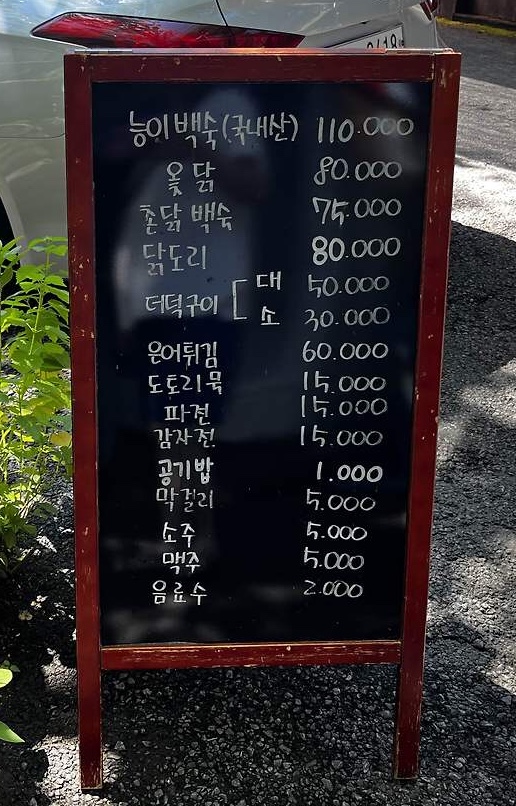 능이백숙(국내산) 110.000
옻닭 80.000
촌닭 백숙 75.000
닭도리 80.000
더덕구이 [ 대 50.000
소 30.000
은어튀김 60.000
도토리묵 15.000
파전 15.000
감자전 15.000
공기밥 1.000
막걸리 5.000
소주 5.000
맥주 5.000
음료수 2.000